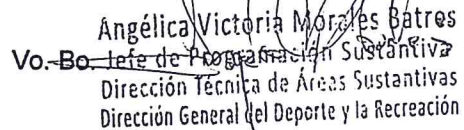 Angélica Victoria Morales Batres
Vo. Bo. Jefe de Programación Sustantiva
Dirección Técnica de Áreas Sustantivas
Dirección General del Deporte y la Recreación